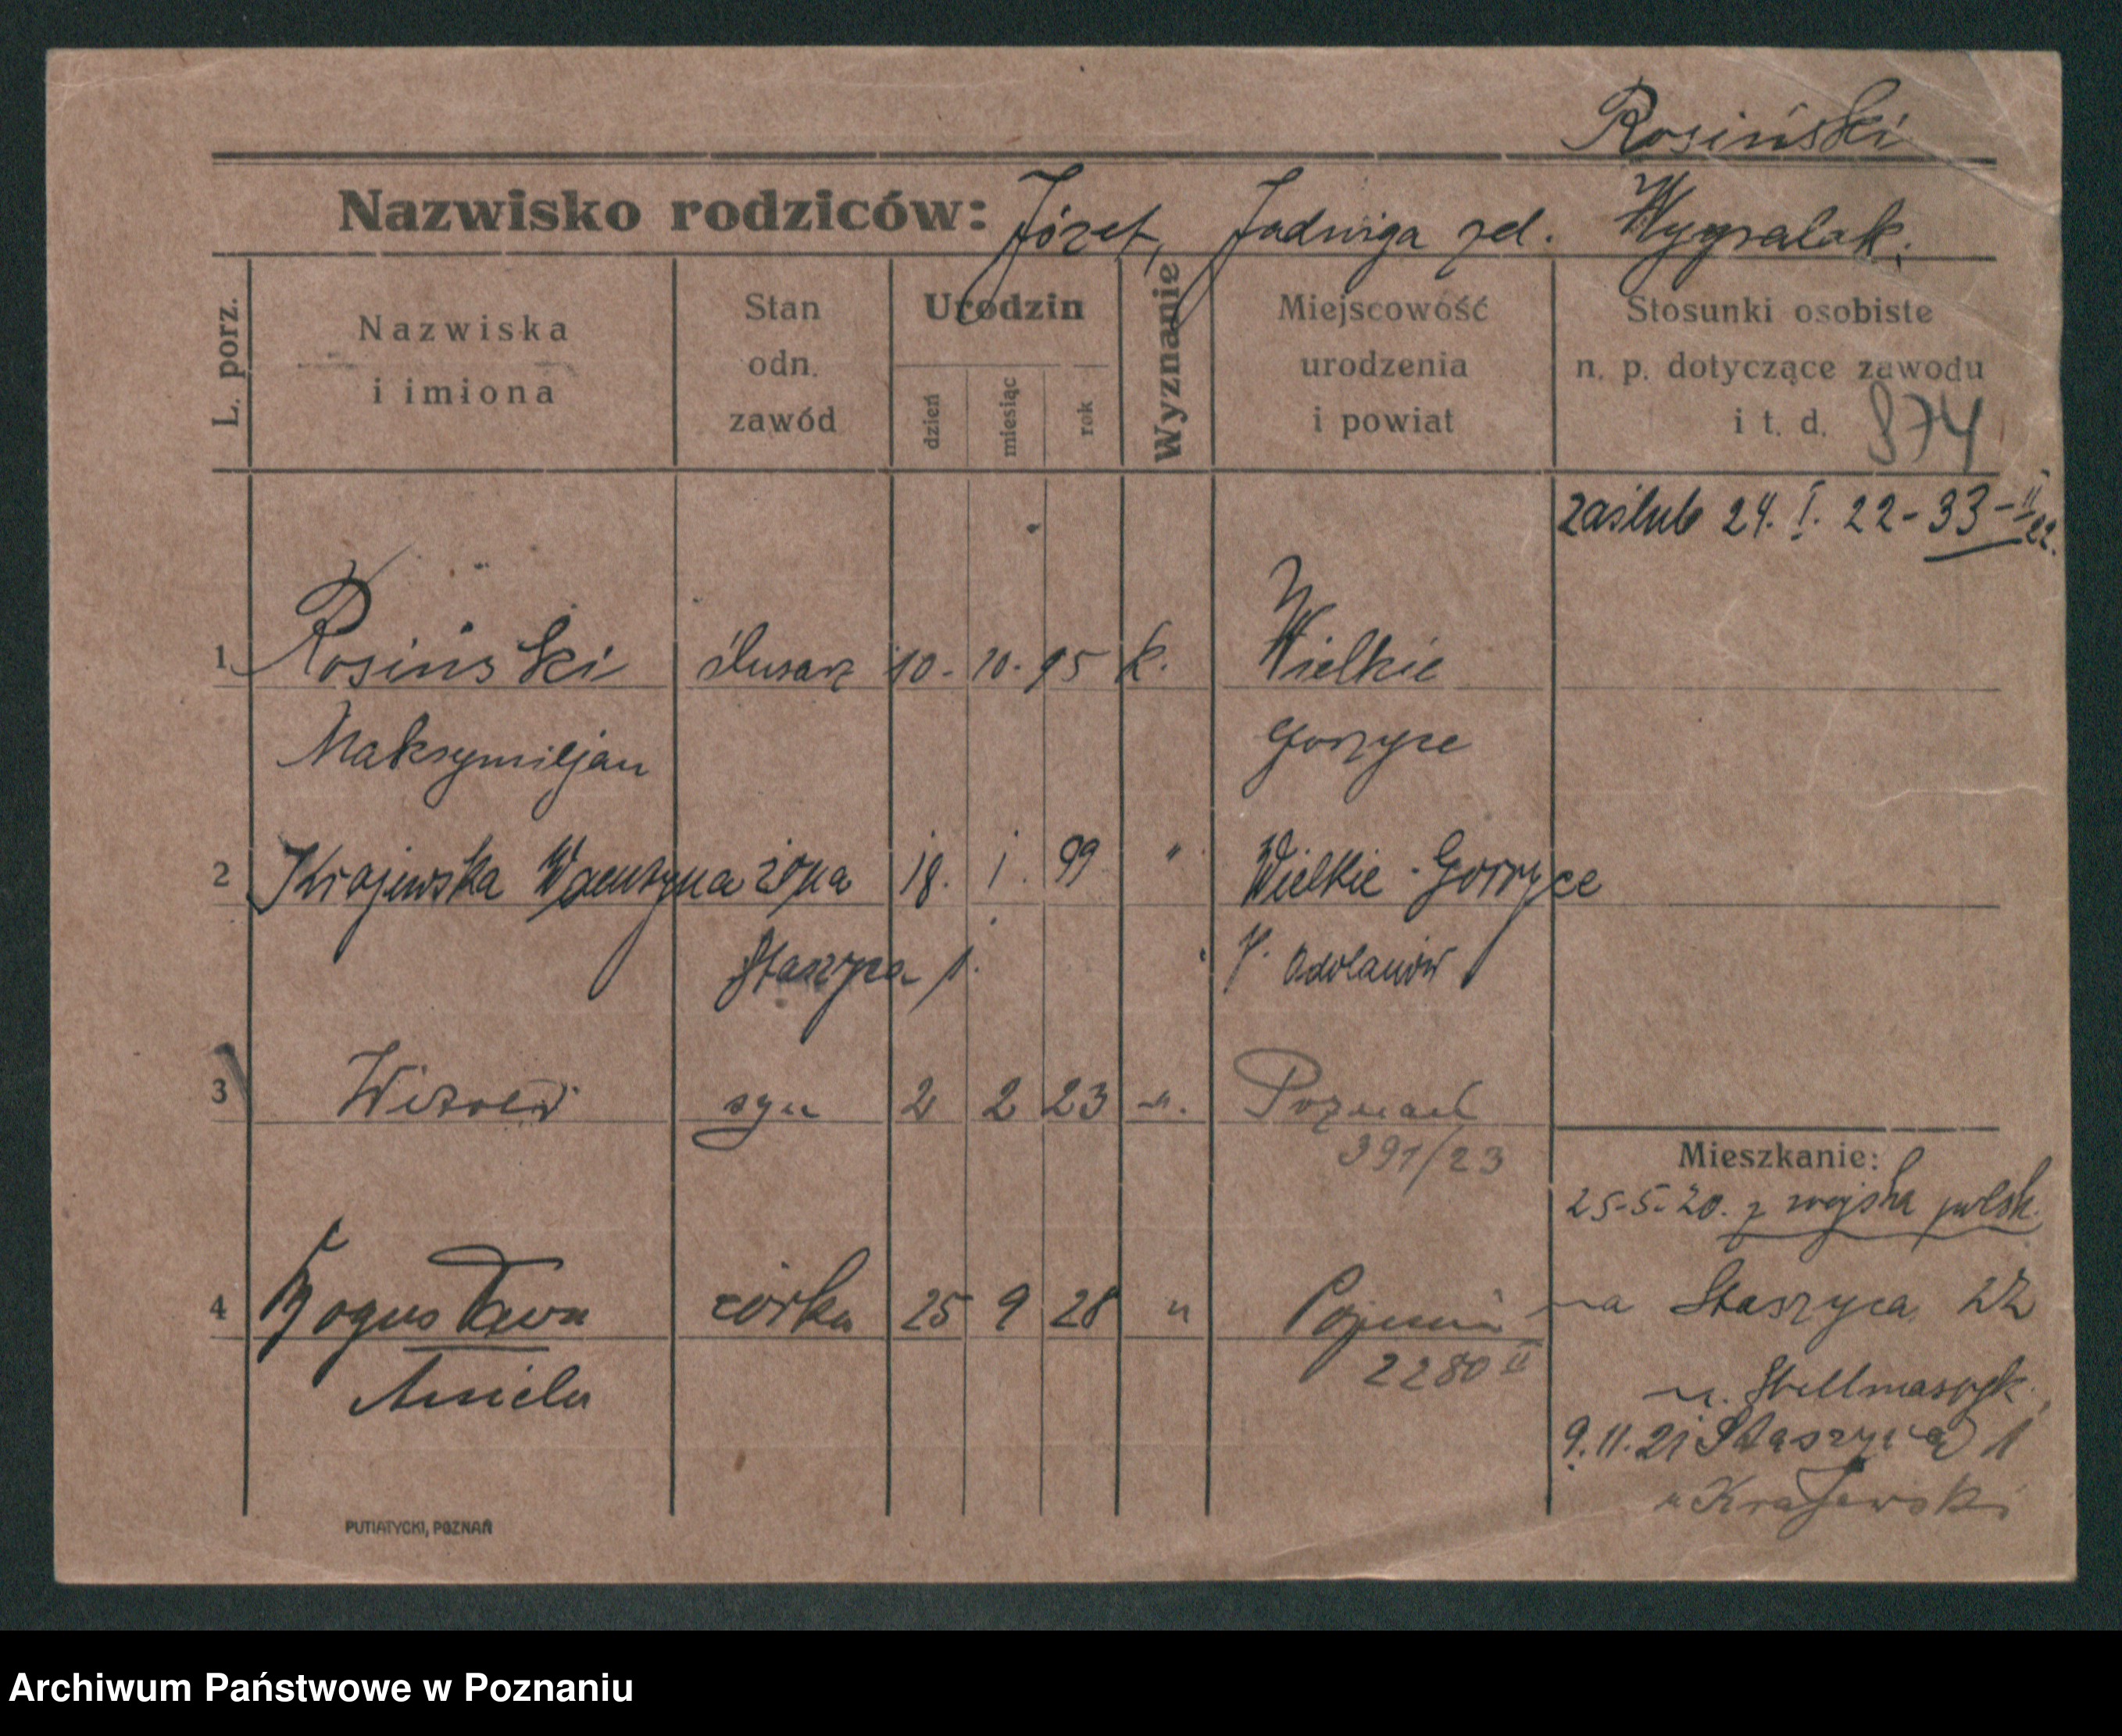 Rosiński
Nazwisko rodziców: Józef, Jadwiga zd. Wygralak.
L. porz.
Nazwiska
i imiona
Stan
odn.
zawód
Urodzin
dzień
miesiąc
rok
Wyznanie
Miejscowość
urodzenia
i powiat
Stosunki osobiste
n. p. dotyczące zawodu
i t. d. 874
zaślub 24. I. 22 - 33 - II 22.
1 Rosiński ślusarz 10. 10. 95 k. Wielkie
Maksymiljan Gorzyce
2 Krajewska żona 18. 1. 99 " Wielkie-Gorzyce
Staszyca 1. p. Odolanów
3 Witold syn 2 2 23 ". Poznań
391/23
Mieszkanie:
25-5-20. z wojska polsk.
4 Bogusława córka 25 9 28 " Poznań
na Staszyca 22
Aniela 2280 II
u.
9.11.21 Staszyca 1
u Krajewski
PUTIATYCKI, POZNAŃ
Archiwum Państwowe w Poznaniu